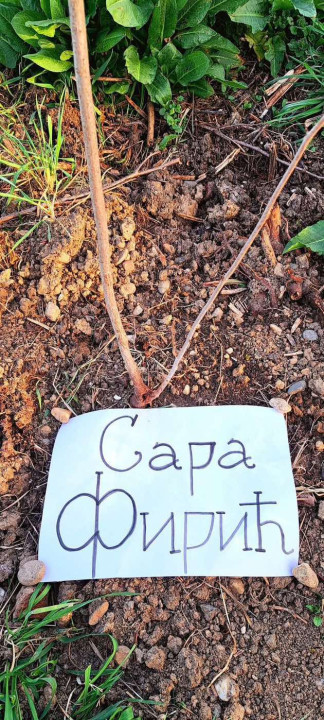 Сара
Фирић